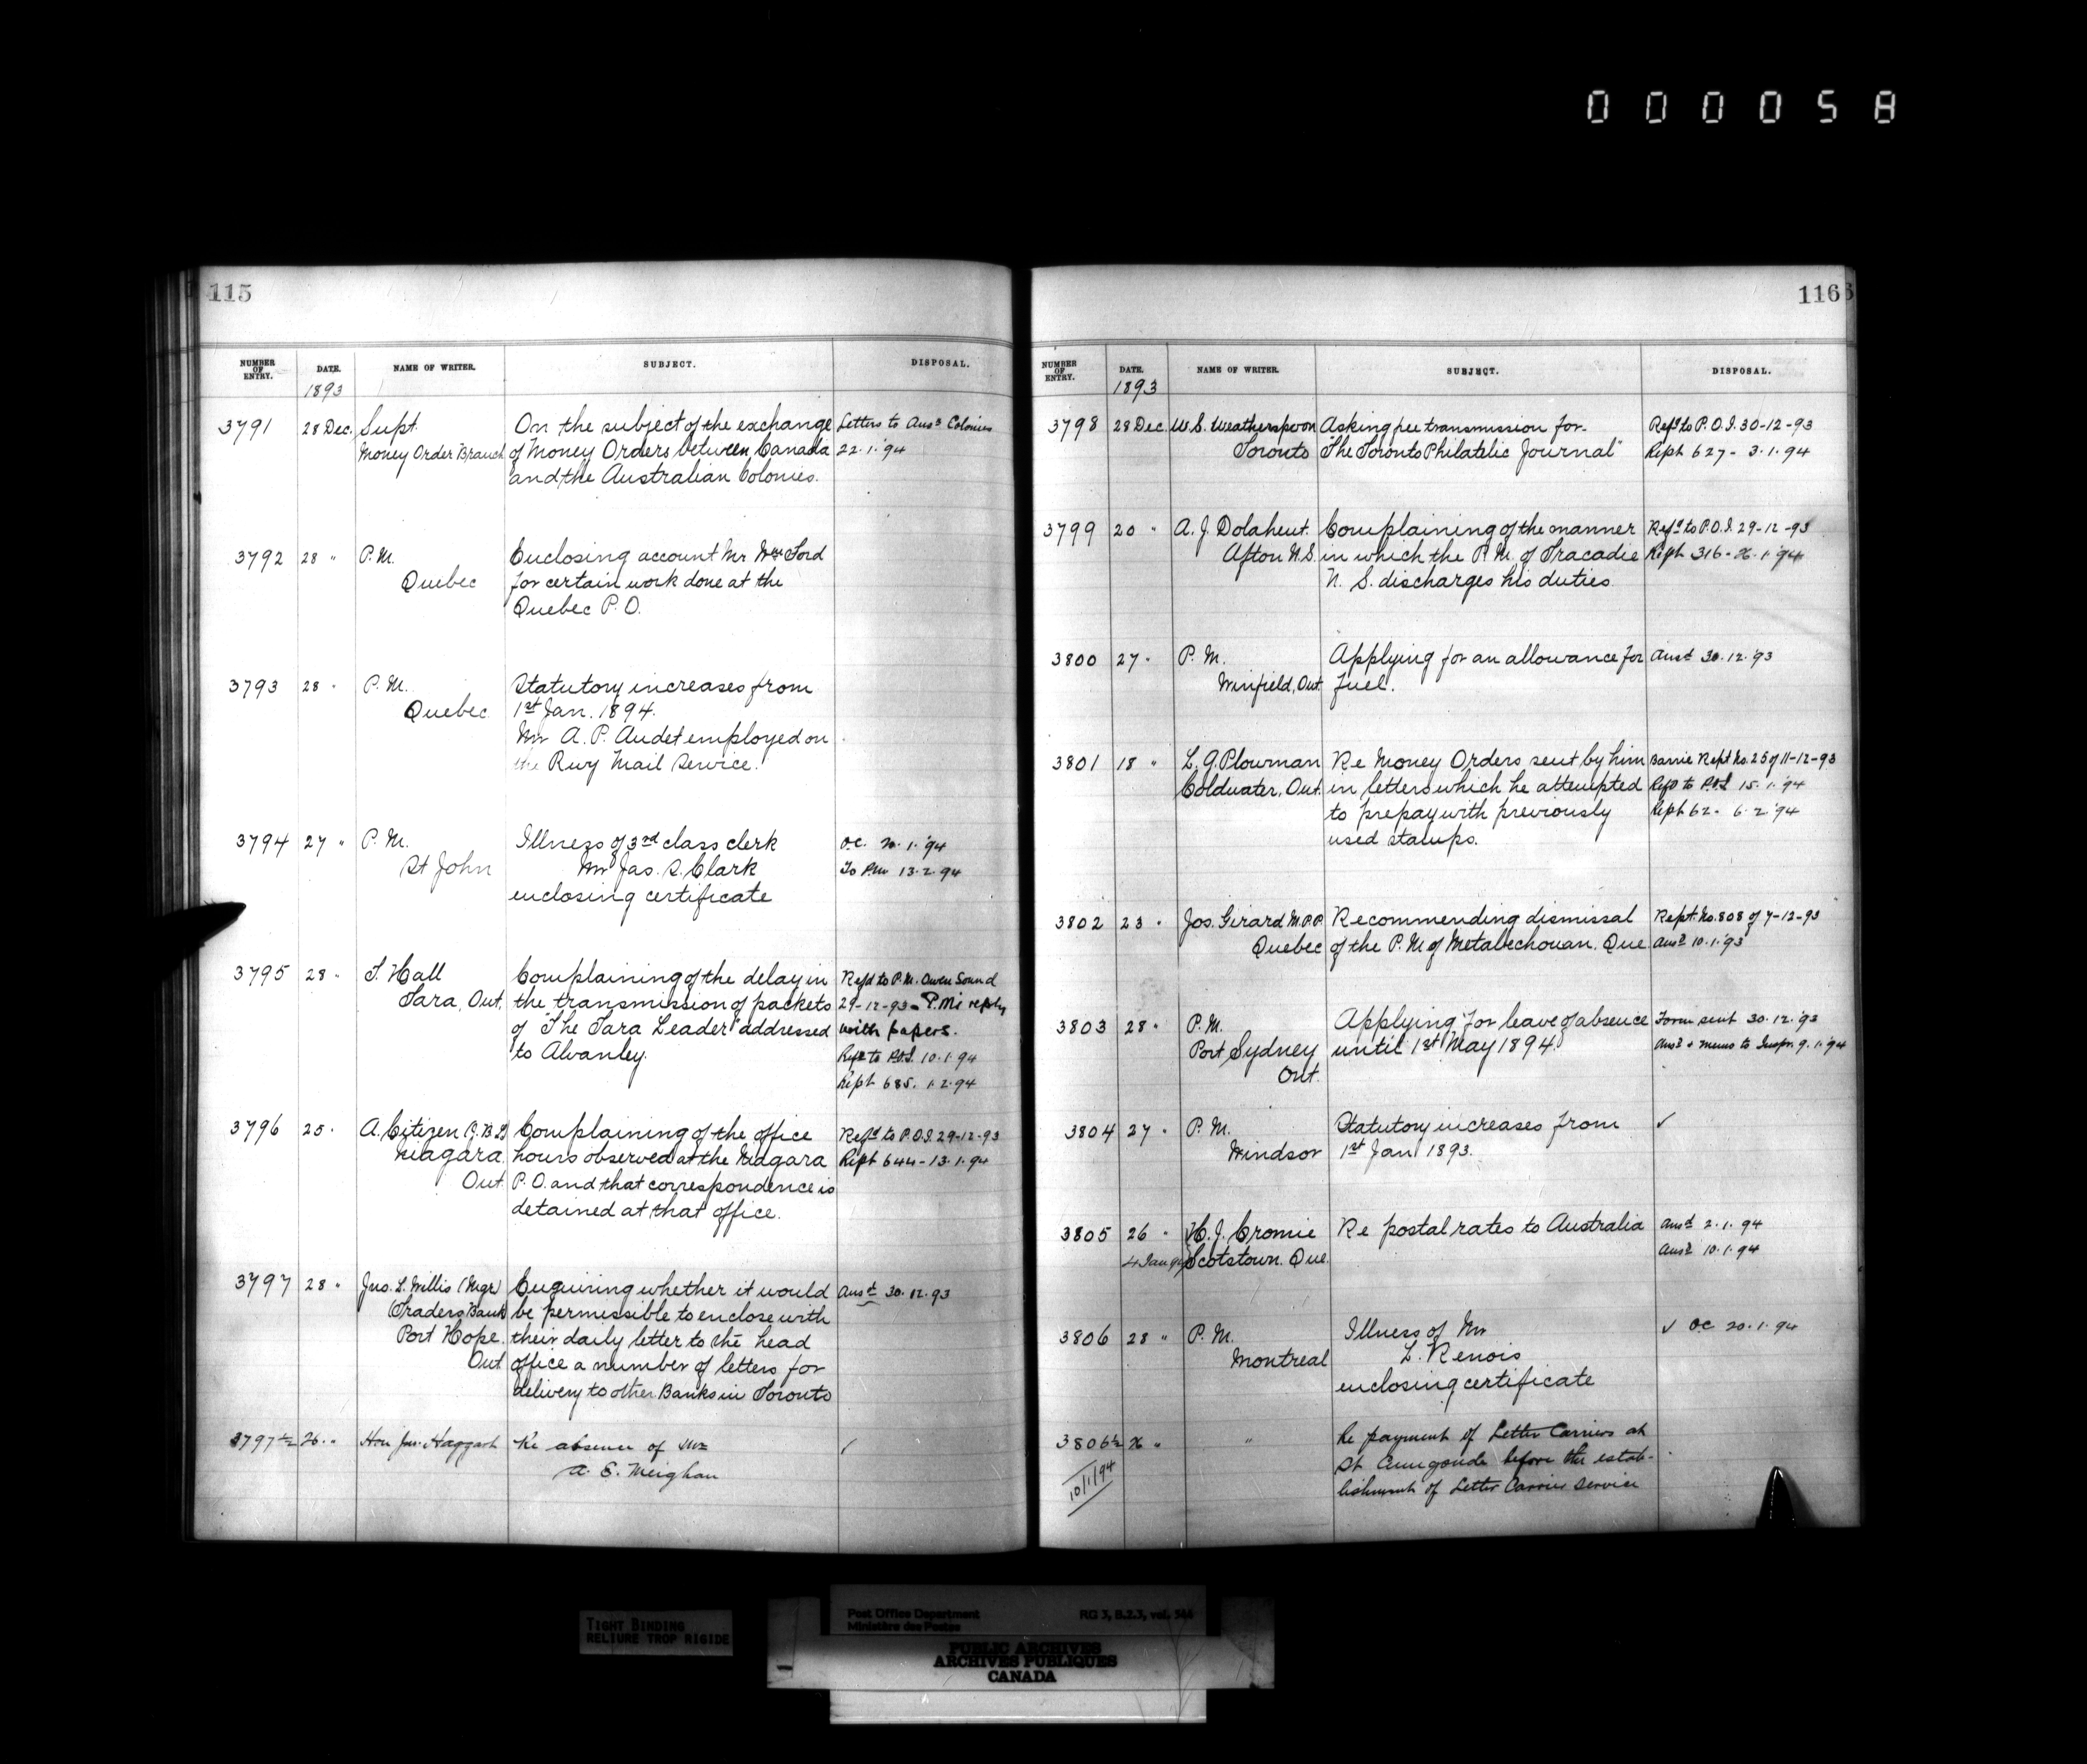 000058
115
NUMBER OF ENTRY. DATE. NAME OF WRITER. SUBJECT. DISPOSAL.
1893
3791 28 Dec. Supt. On the subject of the exchange Letters to Ausn Colonies
Money Order Branch of Money Orders between Canada 22.1.'94
and the Australian Colonies.
3792 28 " P.M. Enclosing account Mr Wm Ford
Quebec for certain work done at the
Quebec P.O.
3793 28 " P.M. Statutory increases from
Quebec 1st Jan. 1894.
Mr A. P. Audet employed on
the Rwy Mail Service.
3794 27 " P.M. Illness of 3rd class clerk O.C. 20.1.'94
St John Mr Jas. S. Clark To P.M. 13.2.94
enclosing certificate
3795 28 " T. Hall Complaining of the delay in Refd to P.M. Owen Sound
Tara, Ont. the transmission of packets 29-12-93 - P.M's reply
of "The Tara Leader" addressed with papers.
to Alvanley. Refd to P.O.I. 10.1.94
Rept 685. 1.2.94
3796 25 " A. Citizen Complaining of the office Refd to P.O.I. 29-12-93
Niagara hours observed at the Niagara Rept 644 - 13.1.94
Ont. P.O. and that correspondence is
detained at that office.
3797 28 " Jno. L. Willis (Mgr) Enquiring whether it would Ansd 30.12.93
Traders Bank be permissible to enclose with
Port Hope. their daily letter to the head
Ont office a number of letters for
delivery to other Banks in Toronto
3797½ 26 " Hon Jno. Haggart Re absence of Mr ✓
A. E. Meighan
116
NUMBER OF ENTRY. DATE. NAME OF WRITER. SUBJECT. DISPOSAL.
1893
3798 28 Dec. W. S. Weatherspoon Asking fee transmission for Refd to P.O.I. 30-12-93
Toronto "The Toronto Philatelic Journal" Rept 627 - 3.1.94
3799 20 " A. J. Dolahent. Complaining of the manner Refd to P.O.I. 29-12-93
Afton N.S. in which the P.M. of Tracadie Rept 316 - 1.'94
N. S. discharges his duties.
3800 27 " P.M. Applying for an allowance for Ansd 30.12.'93
Winfield, Ont. fuel.
3801 18 " L. G. Plowman Re Money Orders sent by him Barrie Rept No. 25 of 11-12-93
Coldwater, Ont. in letters which he attempted Refd to P.O.I. 15.1.'94
to prepay with previously Rept 62 - 6.2.'94
used stamps.
3802 23 " Jos. Girard M.P.P. Recommending dismissal Rept. No. 808 of 7-12-93
Quebec of the P.M. of Metabechouan, Que. Ansd 10.1.'93
3803 28 " P.M. Applying for leave of absence Form sent 30.12.'93
Port Sydney until 1st May 1894. Ansd & memo to Inspr. 9.1.'94
Ont.
3804 27 " P.M. Statutory increases from ✓
Windsor 1st Jan 1893.
3805 26 " H. J. Cromie Re postal rates to Australia Ansd 2.1.94
4 Jan 94 Scotstown. Que. Ansd 10.1.94
3806 28 " P.M. Illness of Mr ✓ O.C. 20.1.94
Montreal L. Renois
enclosing certificate
3806½ " " Re payment of Letter Carriers at
St Cunegonde before the estab-
10/1/94 lishment of Letter Carrier Service
TIGHT BINDING
RELIURE TROP RIGIDE
Post Office Department RG 3, B.2.3, vol. 546
Ministère des Postes
PUBLIC ARCHIVES
ARCHIVES PUBLIQUES
CANADA